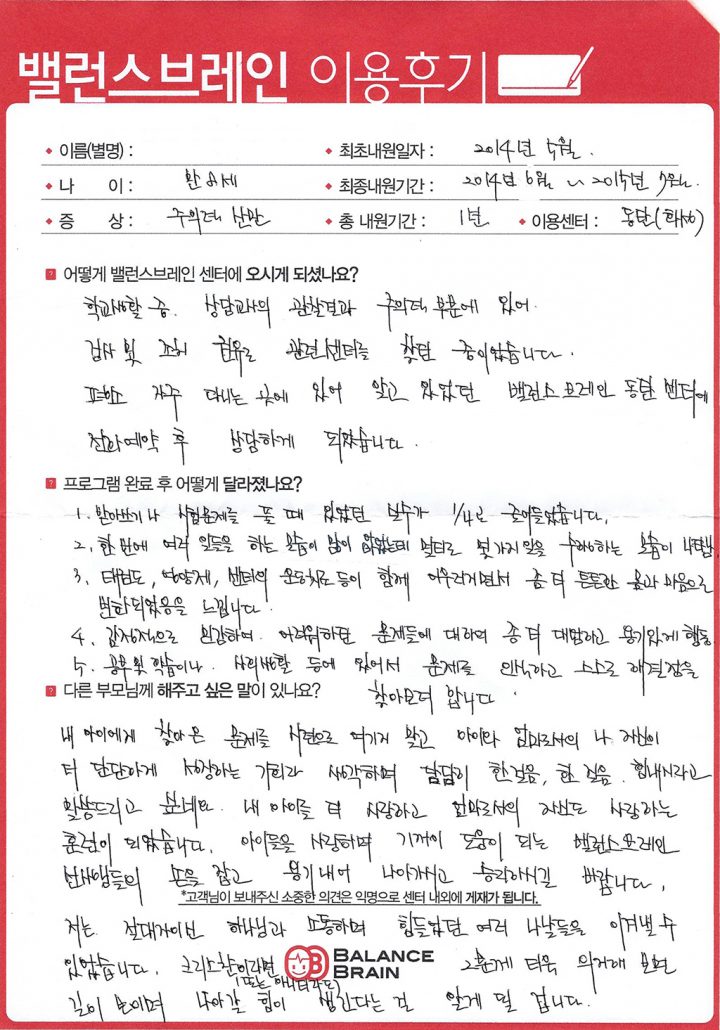 밸런스브레인 이용후기
이름(별명) : 최초내원일자 : 2014년 5월.
나 이 : 만 8세 최종내원기간 : 2014년 6월 ~ 2015년 7월.
증 상 : 주의력 산만 총 내원기간 : 1년 이용센터 : 동탄(화성)
? 어떻게 밸런스브레인 센터에 오시게 되셨나요?
학교생활 중. 상담교사의 관찰결과 주의력 부문에 있어.
검사 및 조치 권유로 관련센터를 찾던 중이었습니다.
평소 자주 다니는 곳에 있어 알고 있었던 밸런스브레인 동탄 센터에
전화예약 후 상담하게 되었습니다.
? 프로그램 완료 후 어떻게 달라졌나요?
1. 받아쓰기나 시험문제를 풀 때 있었던 실수가 1/4로 줄어들었습니다.
2. 한번에 여러 일들을 하는 모습이 많이 없었는데 멀티로 몇가지 일을 수행하는 모습이 나타남.
3. 태권도, 영양제, 센터의 운동치료 등이 함께 어우러지면서 좀 더 튼튼한 몸과 마음으로
변화되었음을 느낍니다.
4. 감정적으로 민감하여. 어려워하던 문제들에 대하여 좀 더 대범하고 용기있게 행동
5. 공부 및 학습이나. 사회생활 등에 있어서 문제를 인식하고 스스로 해결점을
찾아보려 합니다.
? 다른 부모님께 해주고 싶은 말이 있나요?
내 아이에게 찾아온 문제를 시련으로 여기지 말고 아이와 엄마로서의 나 자신이
더 단단하게 성장하는 기회라 생각하며 담담히 한걸음, 한 걸음. 힘내시라고
말씀드리고 싶네요. 내 아이를 더 사랑하고 엄마로서의 자신도 사랑하는
훈련이 되었습니다. 아이들을 사랑하며 기꺼이 도움이 되는 밸런스브레인
선생님들의 손을 잡고 용기내어 나아가시고 승리하시길 바랍니다.
*고객님이 보내주신 소중한 의견은 익명으로 센터 내외에 게재가 됩니다.
저는 절대자이신 하나님과 소통하며 힘들었던 여러 나날들을 이겨낼 수
있었습니다. 크리스찬이라면 BALANCE BRAIN 그분께 더욱 의지해 보면
(또는 아니더라도)
길이 보이며 나아갈 힘이 생긴다는 걸 알게 될 겁니다.